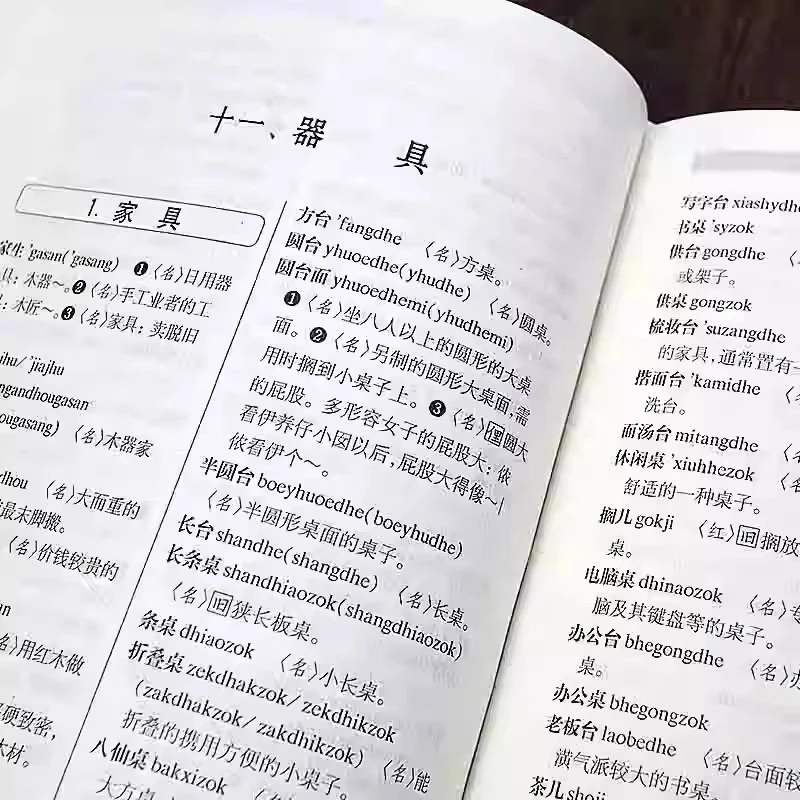 十一、器 具
1. 家 具
家生 'gasan('gasang) ❶〈名〉日用器
具;木器~。❷〈名〉手工业者的工
具:木匠~。❸〈名〉家具:卖脱旧
ihu/ 'jiajhu
ngandhougasan
ougasang) 〈名〉木器家
dhou 〈名〉大而重的
最末脚搬。
〈名〉价钱较贵的
an
〈名〉用红木做
硬致密,
木材。
方台 'fangdhe 〈名〉方桌。
圆台 yhuoedhe(yhudhe) 〈名〉圆桌。
圆台面 yhuoedhemi(yhudhemi)
❶〈名〉坐八人以上的圆形的大桌
面。❷〈名〉另制的圆形大桌面,需
用时搁到小桌子上。❸〈名〉圆大
的屁股。多形容女子的屁股大:侬
看伊养仔小囡以后,屁股大得像~|
侬看伊个~。
半圆台 boeyhuoedhe(boeyhudhe)
〈名〉半圆形桌面的桌子。
长台 shandhe(shangdhe) 〈名〉长桌。
长条桌 shandhiaozok(shangdhiaozok)
〈名〉狭长板桌。
条桌 dhiaozok 〈名〉小长桌。
折叠桌 zekdhakzok/ zekdhikzok
(zakdhakzok/ zakdhikzok) 〈名〉能
折叠的携用方便的小桌子。
八仙桌 bakxizok 〈名〉
大方桌
写字台 xiashydhe
书桌 'syzok
供台 gongdhe
或架子。
供桌 gongzok
梳妆台 'suzangdhe
的家具,通常置有一
揩面台 'kamidhe
洗台。
面汤台 mitangdhe
休闲桌 'xiuhhezok
舒适的一种桌子。
搁几 gokji 〈红〉旧搁放
桌。
电脑桌 dhinaozok 〈名〉专
脑及其键盘等的桌子。
办公台 bhegongdhe 〈名〉办
桌。
办公桌 bhegongzok
老板台 laobedhe 〈名〉台面较
潢气派较大的书桌。
茶几 shoji